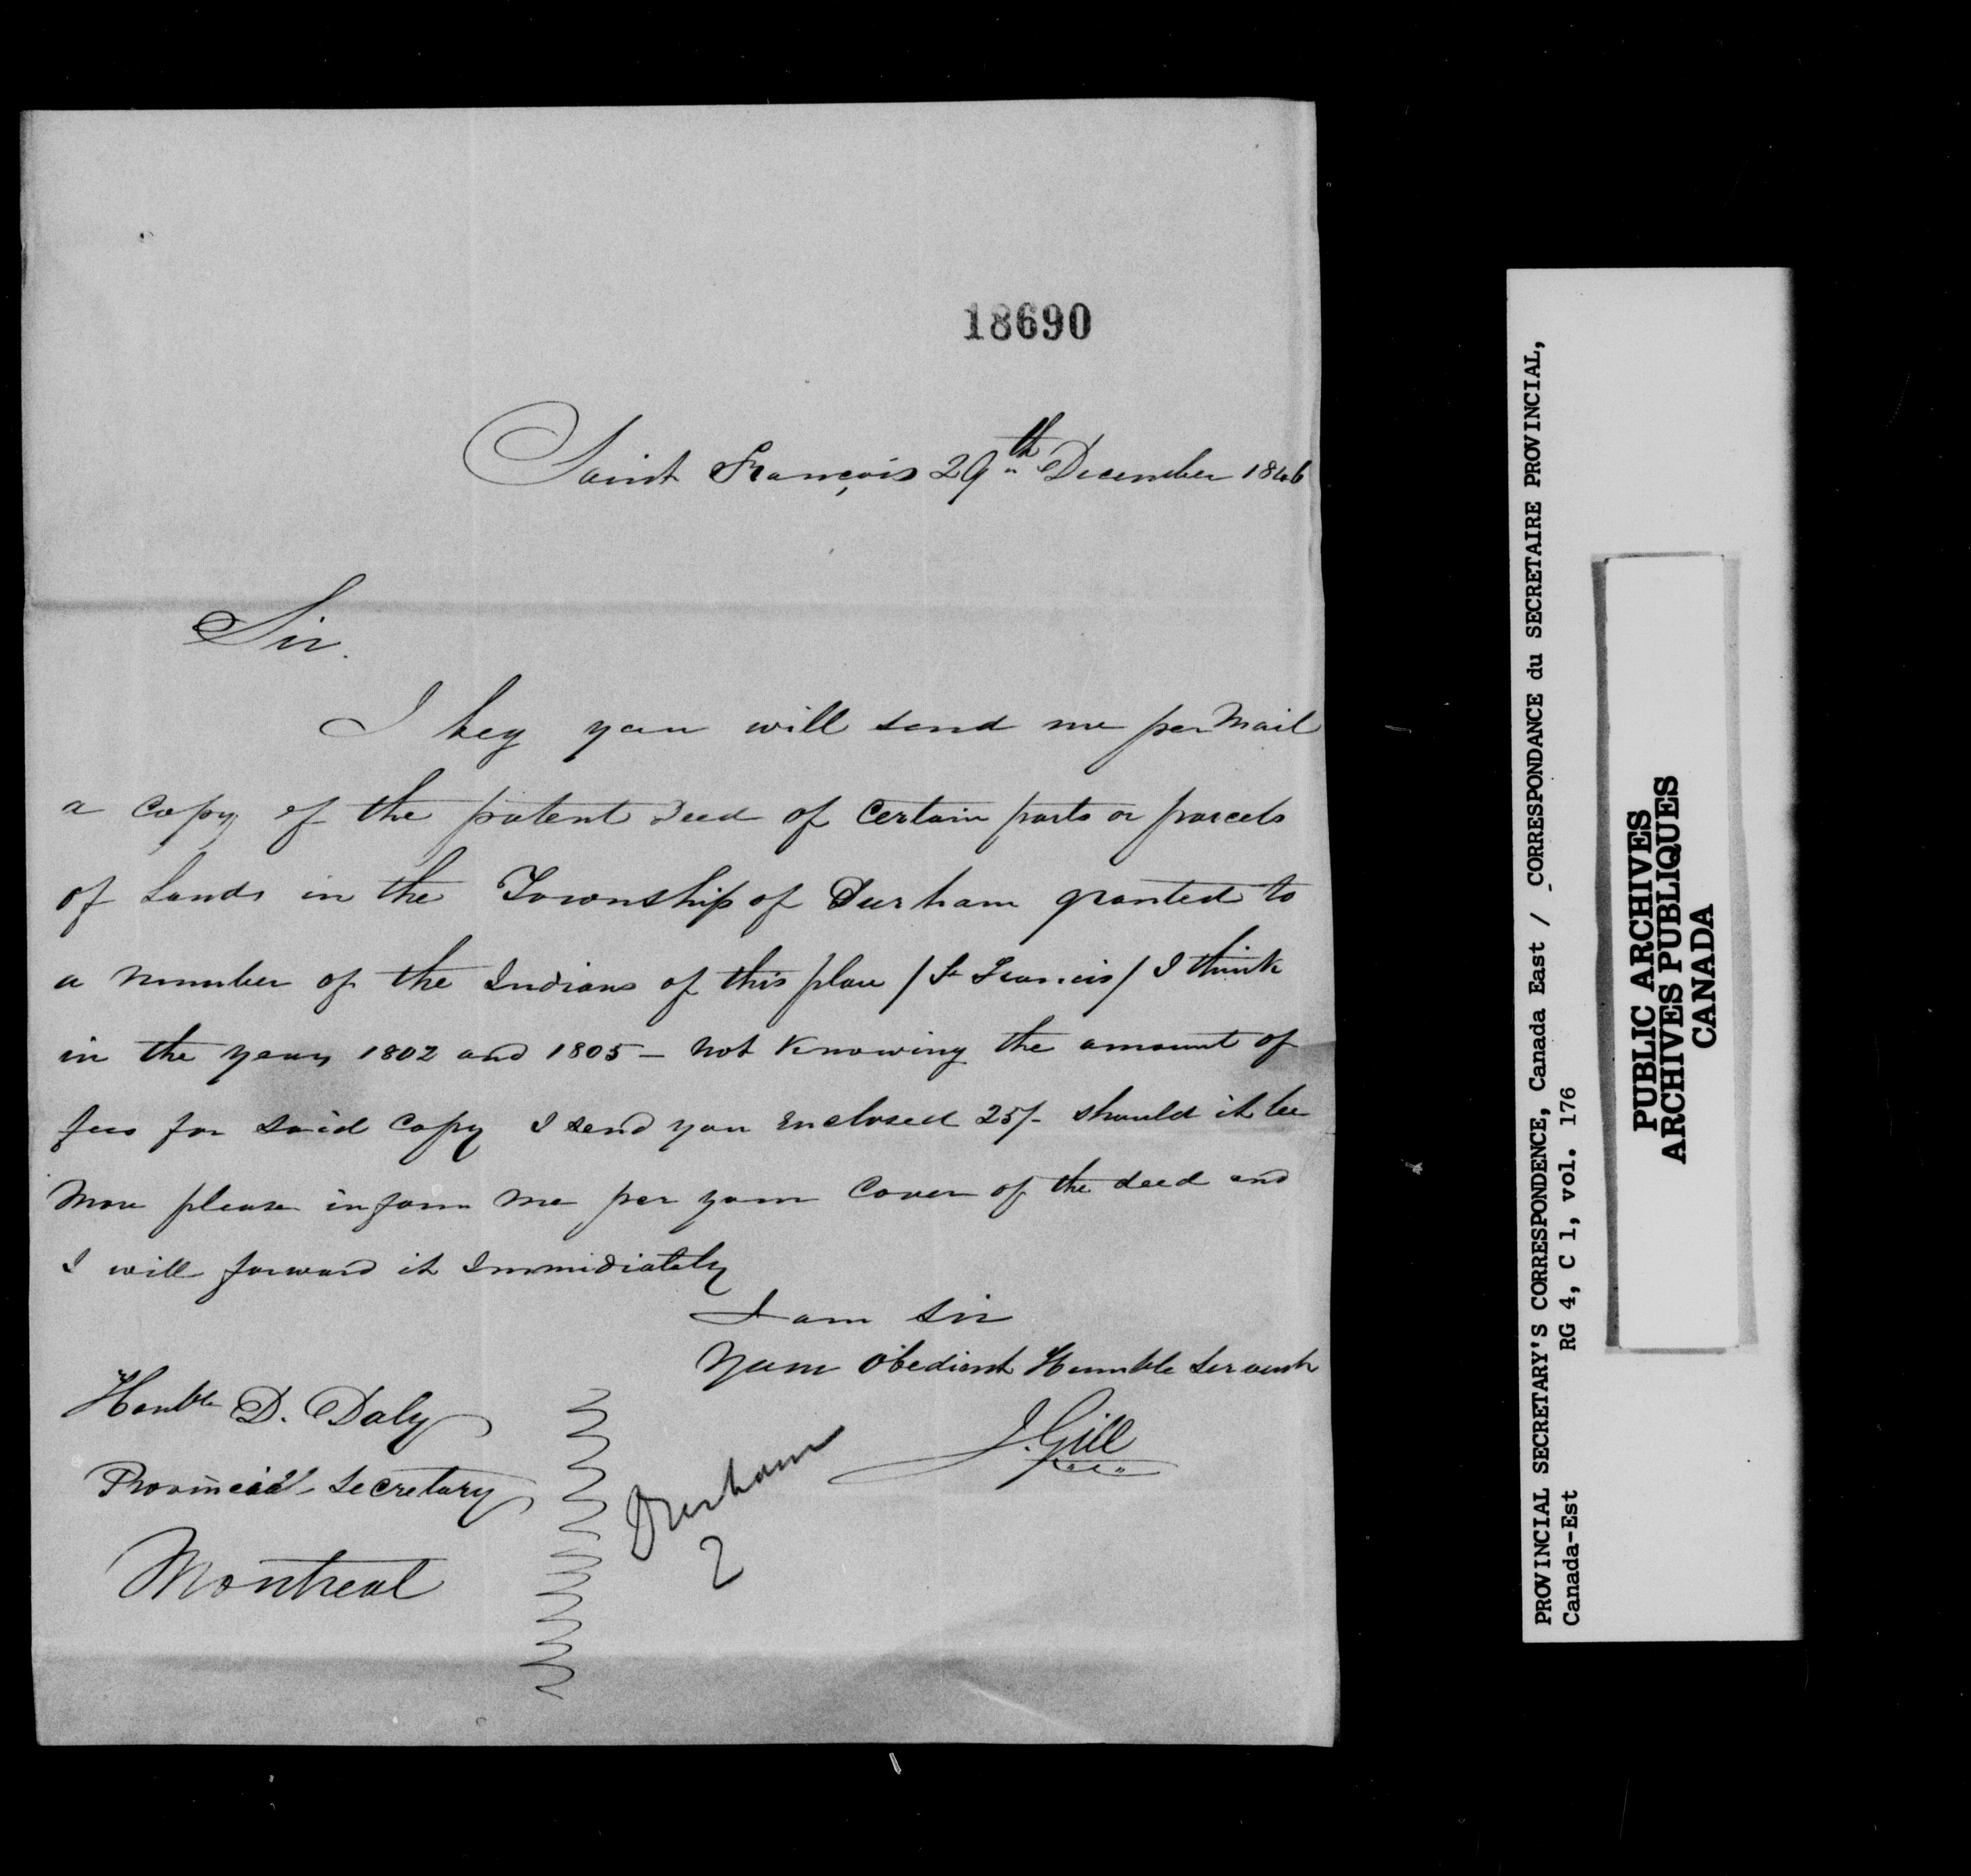 18690
Saint François 29th December 1846
Sir.
I beg you will send me per Mail
a Copy of the patent Deed of Certain parts or parcels
of Lands in the Township of Durham granted to
a number of the Indians of this place / St Francis / I think
in the years 1802 and 1805 — not Knowing the amount of
fees for said Copy I send you Enclosed 25/- should it be
More please inform me per your Cover of the deed and
I will forward it Immidiately
I am Sir
Your Obedient Humble Servant
J. Gill
Honble D. Daly
Provincial Secretary
Montreal
Durham
2
PROVINCIAL SECRETARY'S CORRESPONDENCE, Canada East / CORRESPONDANCE du SECRETAIRE PROVINCIAL,
Canada-Est RG 4, C 1, vol. 176
PUBLIC ARCHIVES
ARCHIVES PUBLIQUES
CANADA